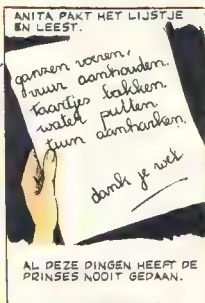 ANITA PAKT HET LIJSTJE
EN LEEST.
ganzen voeren,
vuur aanhouden.
taartjes bakken.
water putten
tuin aanharken.
dank je wel
AL DEZE DINGEN HEEFT DE
PRINSES NOOIT GEDAAN.